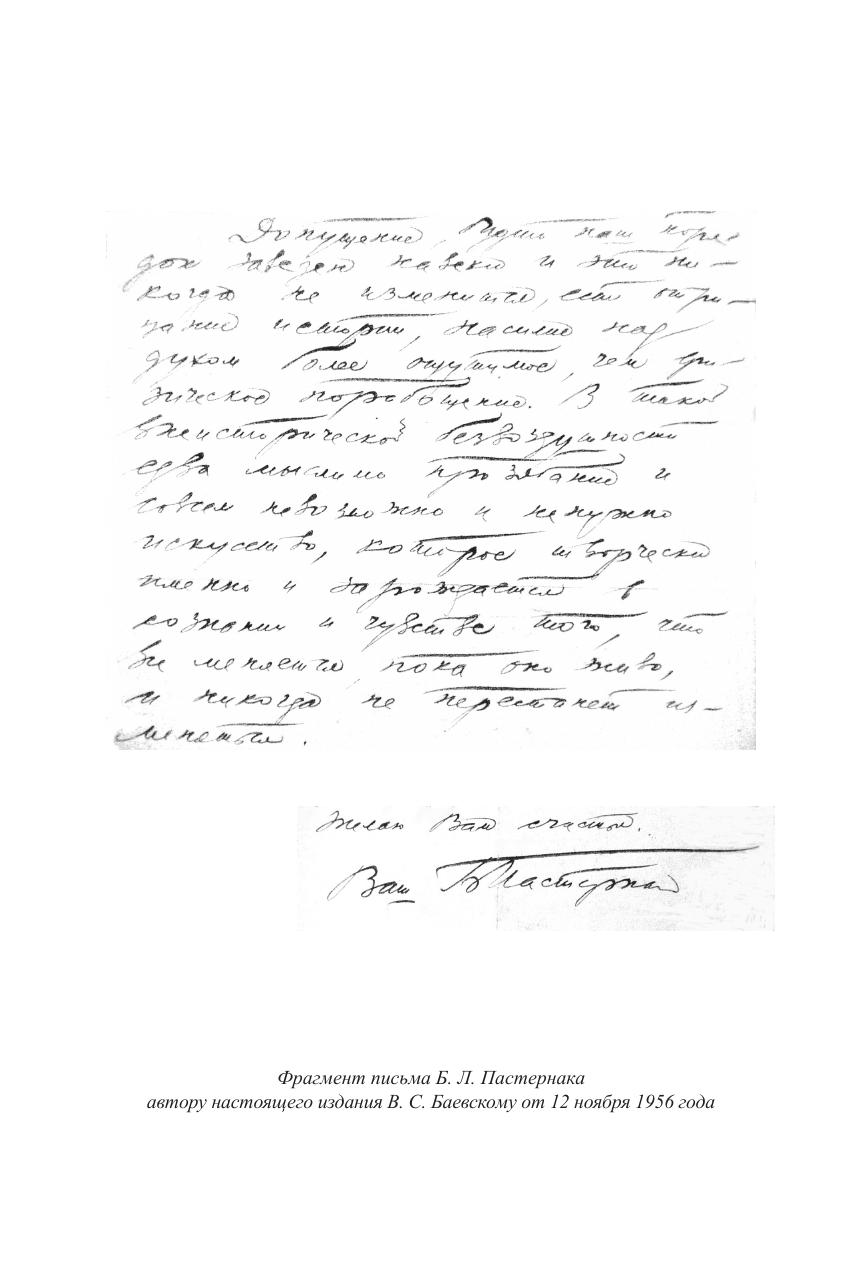 Допущение, будто наш поря-
док заведен навеки и это ни-
когда не изменится, есть отри-
цание истории, насилие над
духом более ощутимое, чем фи-
зическое порабощение. В такой
внеисторической безвоздушности
едва мыслимо прозябание и
совсем невозможно и ненужно
искусство, которое творчески
именно и зарождается в
сознании и чувстве того, что
все меняется пока оно живо,
и никогда не перестанет из-
меняться.
Желаю Вам счастья.
Ваш Б Пастернак
Фрагмент письма Б. Л. Пастернака
автору настоящего издания В. С. Баевскому от 12 ноября 1956 года